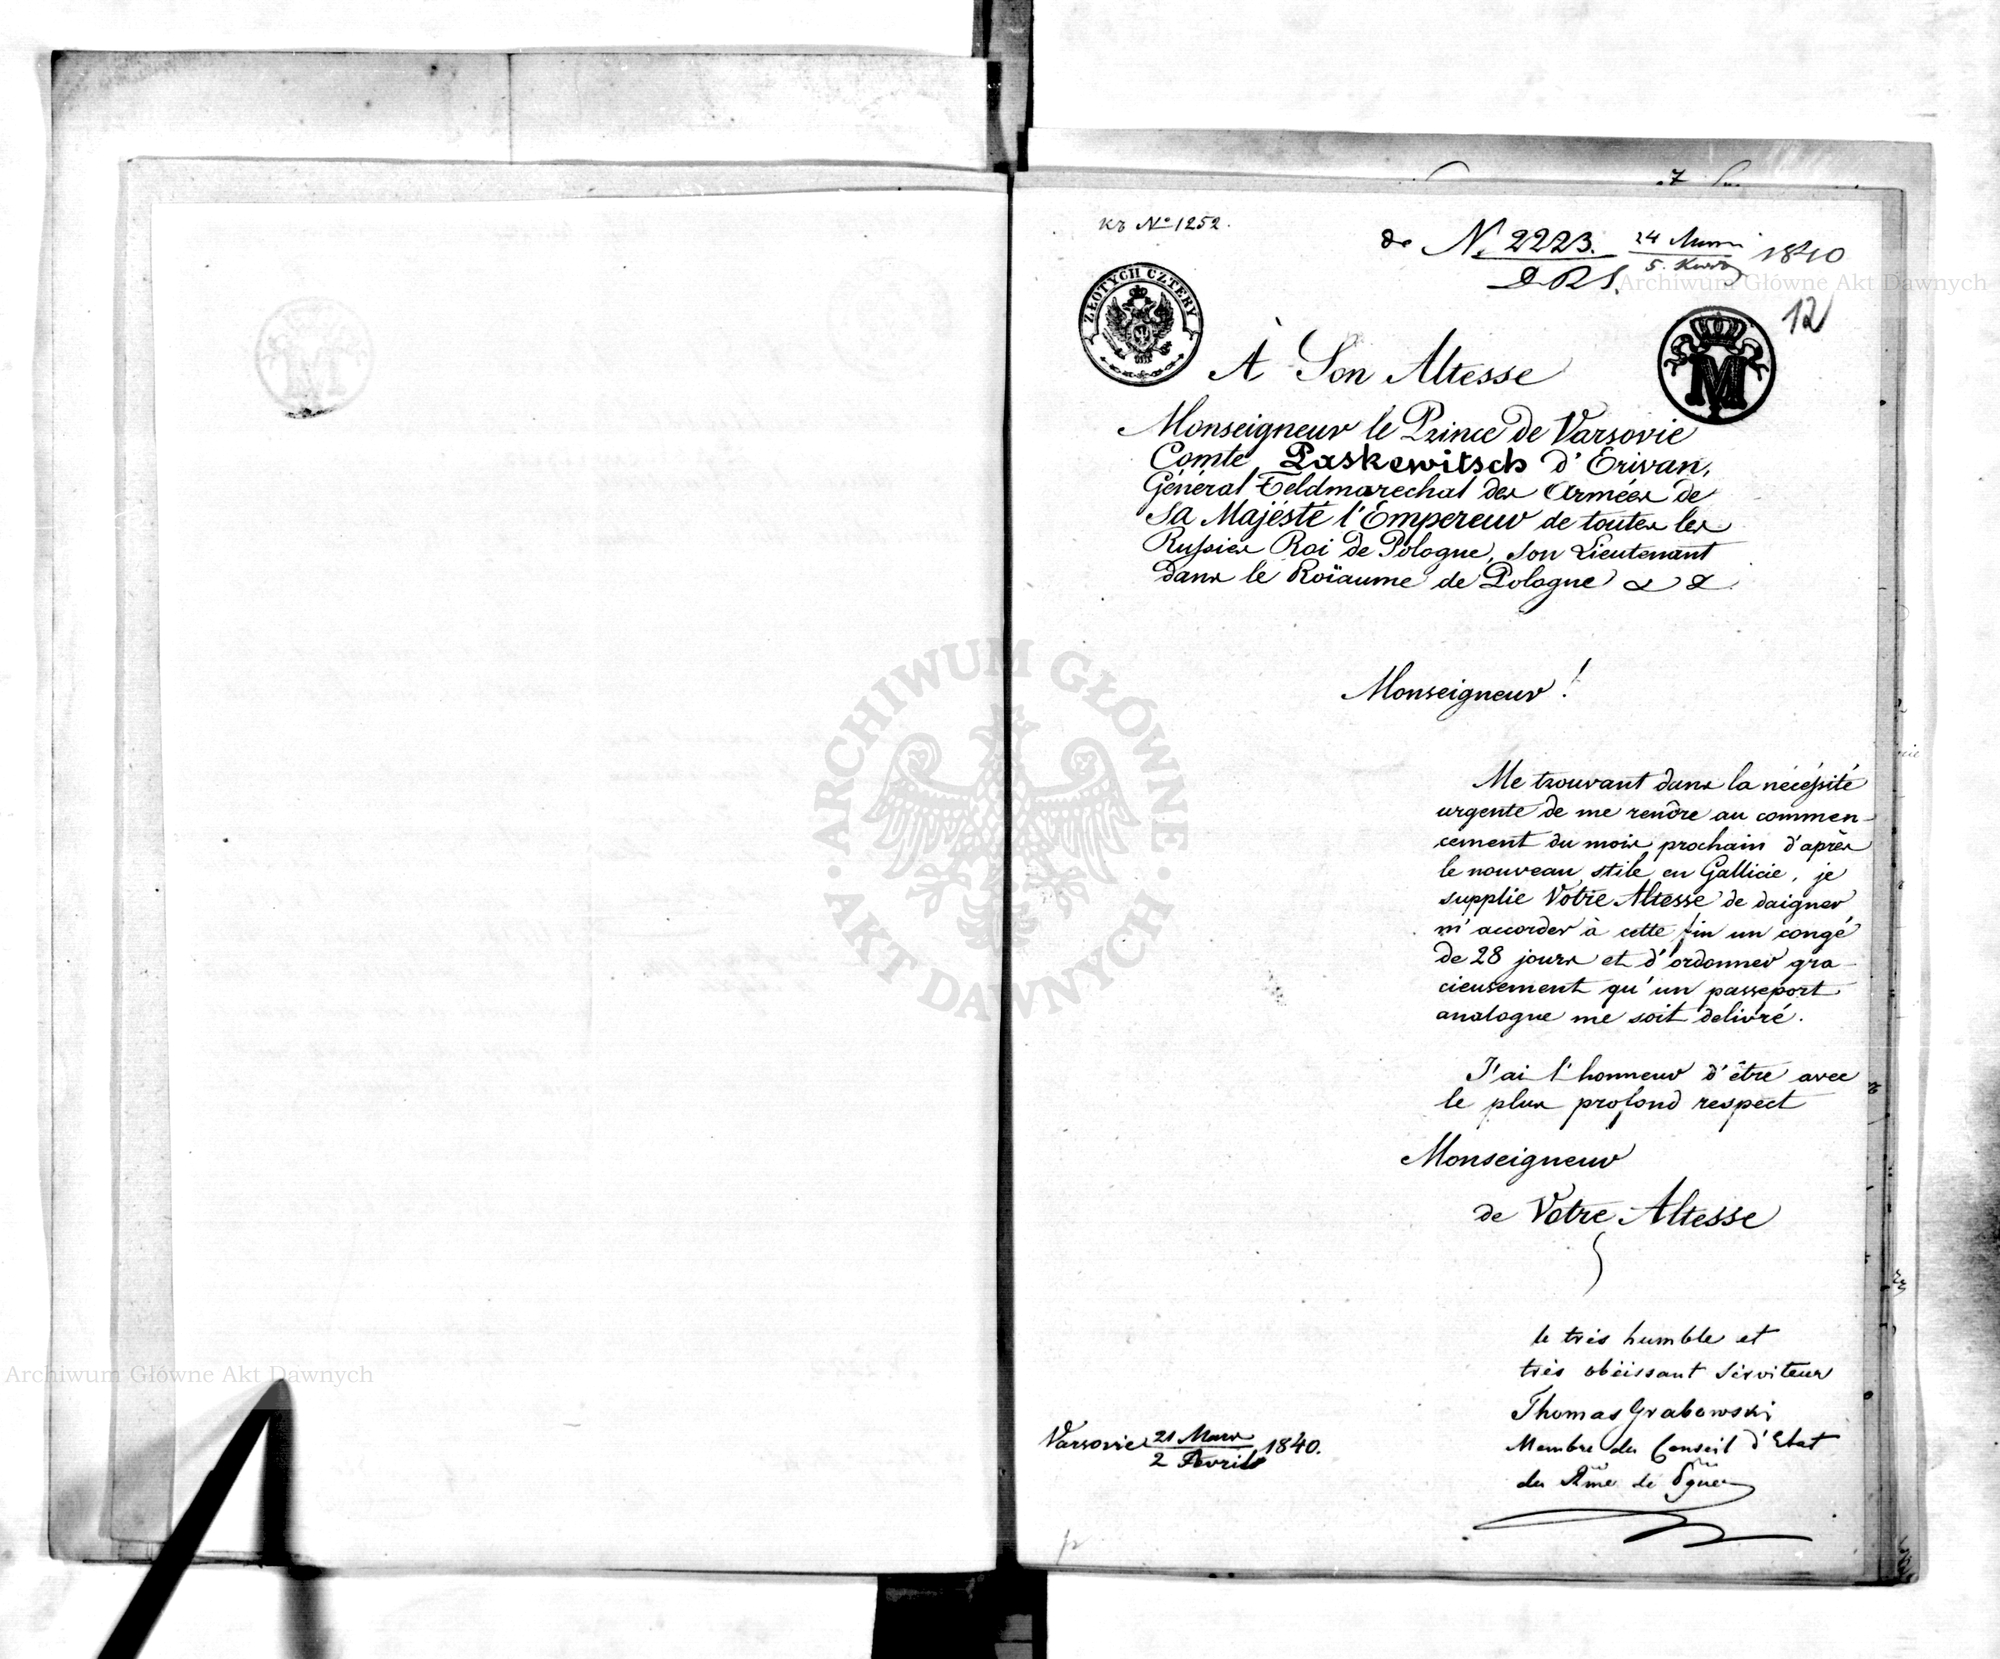 къ № 1252.
de N. 2223. 24 Marca / 5. Kwiet 1840
D.R.S.
12
ZŁOTYCH CZTERY
M
À Son Altesse
Monseigneur le Prince de Varsovie
Comte Paskewitsch d'Erivan,
Général Feldmarechal des Armées de
Sa Majésté l'Empereur de toutes les
Russies Roi de Pologne, Son Lieutenant
dans le Roïaume de Pologne & &
Monseigneur!
Me trouvant dans la nécéssité
urgente de me rendre au commen-
cement du mois prochain d'après
le nouveau stile en Gallicie, je
supplie Votre Altesse de daigner
m'accorder à cette fin un congé
de 28 jours et d'ordonner gra-
cieusement qu'un passeport
analogue me soit delivré.
J'ai l'honneur d'être avec
le plus profond respect
Monseigneur
de Votre Altesse
le très humble et
très obéissant Serviteur
Thomas Grabowski
Membre du Conseil d'Etat
du Rme de Pgne
Varsovie 21 Mars / 2 Avril 1840.
Archiwum Główne Akt Dawnych
ARCHIWUM GŁÓWNE · AKT DAWNYCH ·
Archiwum Główne Akt Dawnych